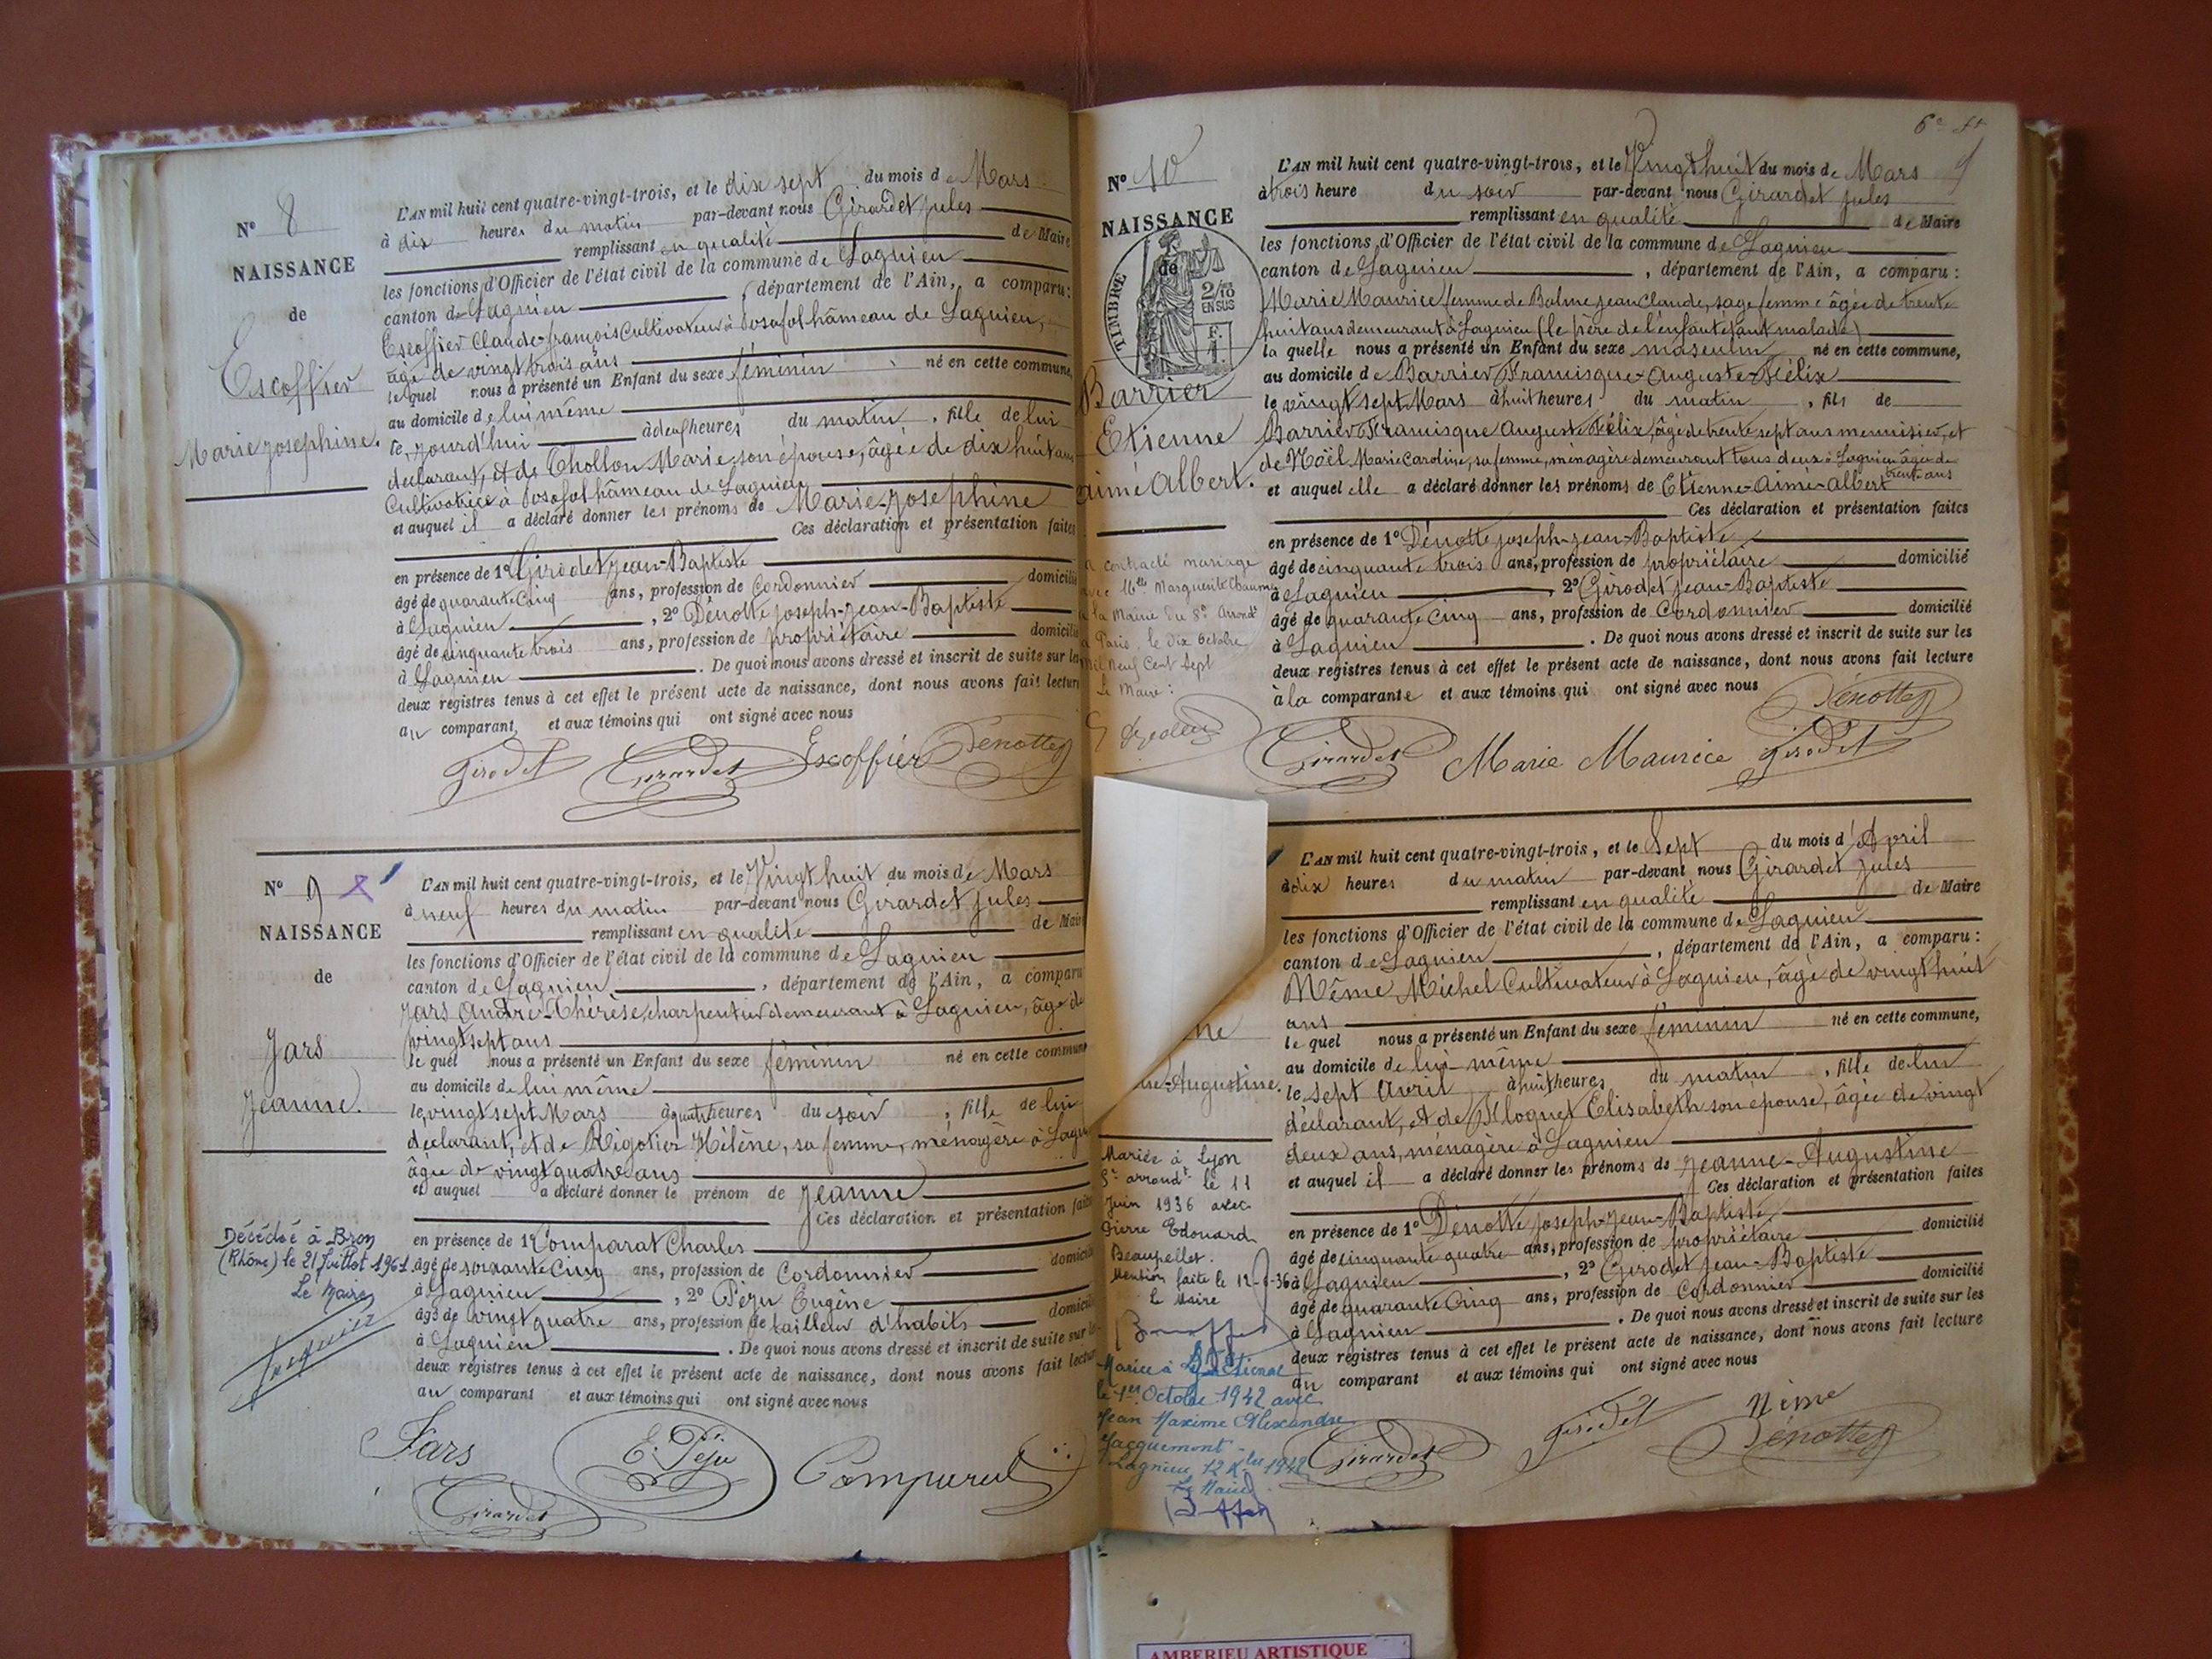 N° 8
NAISSANCE
de
Escoffier
Marie Josephine.
L'AN mil huit cent quatre-vingt-trois, et le dix sept du mois de Mars
à dix heures du matin par-devant nous Girardet Jules
remplissant en qualité de Maire
les fonctions d'Officier de l'état civil de la commune de Lagnieu
canton de Lagnieu , département de l'Ain, a comparu:
Escoffier Claude-françois Cultivateur à Posafol hâmeau de Lagnieu,
âgé de vingt trois ans
lequel nous a présenté un Enfant du sexe féminin né en cette commune,
au domicile de lui même
le, jourd'hui à deux heures du matin , fille de lui
déclarant, et de Thollon Marie son épouse, âgée de dix huit ans
Cultivatrice à Posafol hâmeau de Lagnieu
et auquel il a déclaré donner les prénoms de Marie-Josephine
Ces déclaration et présentation faites
en présence de 1° Girodet Jean-Baptiste
âgé de quarante cinq ans, profession de Cordonnier domicilié
à Lagnieu , 2° Dénotte Joseph-Jean-Baptiste
âgé de cinquante trois ans, profession de propriétaire domicilié
à Lagnieu . De quoi nous avons dressé et inscrit de suite sur les
deux registres tenus à cet effet le présent acte de naissance, dont nous avons fait lecture
au comparant et aux témoins qui ont signé avec nous
Girodet Girardet Escoffier Dénotte
N° 9
NAISSANCE
de
Jars
Jeanne.
L'AN mil huit cent quatre-vingt-trois, et le Vingt huit du mois de Mars
à neuf heures du matin par-devant nous Girardet Jules
remplissant en qualité de Maire
les fonctions d'Officier de l'état civil de la commune de Lagnieu
canton de Lagnieu , département de l'Ain, a comparu
Jars André-Thérèse, charpentier demeurant à Lagnieu, âgé de
vingt sept ans
le quel nous a présenté un Enfant du sexe féminin né en cette commune
au domicile de lui même
le, vingt sept Mars à quatre heures du soir , fille de lui
déclarant, et de Rigotier Hélène, sa femme, ménagère à Lagnieu
âgée de vingt quatre ans
et auquel a déclaré donner le prénom de Jeanne
Ces déclaration et présentation faites
en présence de 1° Comparat Charles
âgé de soixante cinq ans, profession de Cordonnier domicilié
à Lagnieu , 2° Péju Eugène
âgé de vingt quatre ans, profession de tailleur d'habits domicilié
à Lagnieu . De quoi nous avons dressé et inscrit de suite sur les
deux registres tenus à cet effet le présent acte de naissance, dont nous avons fait lecture
au comparant et aux témoins qui ont signé avec nous
Décédée à Bron
(Rhône) le 21 Juillet 1961
Le Maire
Jars E. Péju Comparat
Girardet
N° 10
NAISSANCE
de
TIMBRE
2/10
EN SUS
F.
1.
Barrier
Etienne
aimé Albert.
a contracté mariage
avec Melle Marguerite
à la Mairie du 8e Arrondt
à Paris, le dix Octobre
mil neuf cent sept
Le Maire :
L'AN mil huit cent quatre-vingt-trois, et le Vingt huit du mois de Mars
à trois heure du soir par-devant nous Girardet Jules
remplissant en qualité de Maire
les fonctions d'Officier de l'état civil de la commune de Lagnieu
canton de Lagnieu , département de l'Ain, a comparu :
Marie Maurice femme de Balme Jean Claude, sage femme âgée de trente
huit ans demeurant à Lagnieu (le père de l'enfant étant malade)
la quelle nous a présenté un Enfant du sexe masculin né en cette commune,
au domicile de Barrier Francisque-Auguste-Félix
le vingt sept Mars à huit heures du matin , fils de
Barrier Francisque Auguste Félix, âgé de trente sept ans menuisier, et
de Noël Marie Caroline, sa femme, ménagère demeurant tous deux à Lagnieu âgée de
trente ans
et auquel elle a déclaré donner les prénoms de Etienne-Aimé-Albert
Ces déclaration et présentation faites
en présence de 1° Dénotte Joseph-Jean-Baptiste
âgé de cinquante trois ans, profession de propriétaire domicilié
à Lagnieu , 2° Girodet Jean-Baptiste
âgé de quarante cinq ans, profession de Cordonnier domicilié
à Lagnieu . De quoi nous avons dressé et inscrit de suite sur les
deux registres tenus à cet effet le présent acte de naissance, dont nous avons fait lecture
à la comparante et aux témoins qui ont signé avec nous
Dénotte
Girardet Marie Maurice Girodet
ne
ne-Augustine.
Mariée à Lyon
5e arrondt le 11
Juin 1936 avec
Pierre Edouard
Beaupellet.
Mention faite le 12-6-36
le Maire
Mariée à
le 1er Octobre 1942 avec
Jean Maxime Alexandre
Jacquemont
Lagnieu 12 1942
Le Maire
L'AN mil huit cent quatre-vingt-trois, et le Sept du mois d'Avril
à dix heures du matin par-devant nous Girardet Jules
remplissant en qualité de Maire
les fonctions d'Officier de l'état civil de la commune de Lagnieu
canton de Lagnieu , département de l'Ain, a comparu :
Même Michel Cultivateur à Lagnieu, âgé de vingt huit
ans
le quel nous a présenté un Enfant du sexe féminin né en cette commune,
au domicile de lui même
le sept Avril à huit heures du matin , fille de lui
déclarant, et de Floquet Elisabeth son épouse, âgée de vingt
deux ans, ménagère à Lagnieu
et auquel il a déclaré donner les prénoms de Jeanne-Augustine
Ces déclaration et présentation faites
en présence de 1° Dénotte Joseph-Jean-Baptiste
âgé de cinquante quatre ans, profession de propriétaire domicilié
à Lagnieu , 2° Girodet Jean-Baptiste
âgé de quarante cinq ans, profession de Cordonnier domicilié
à Lagnieu . De quoi nous avons dressé et inscrit de suite sur les
deux registres tenus à cet effet le présent acte de naissance, dont nous avons fait lecture
au comparant et aux témoins qui ont signé avec nous
Girardet Girodet Néme
Dénotte
AMBERIEU ARTISTIQUE